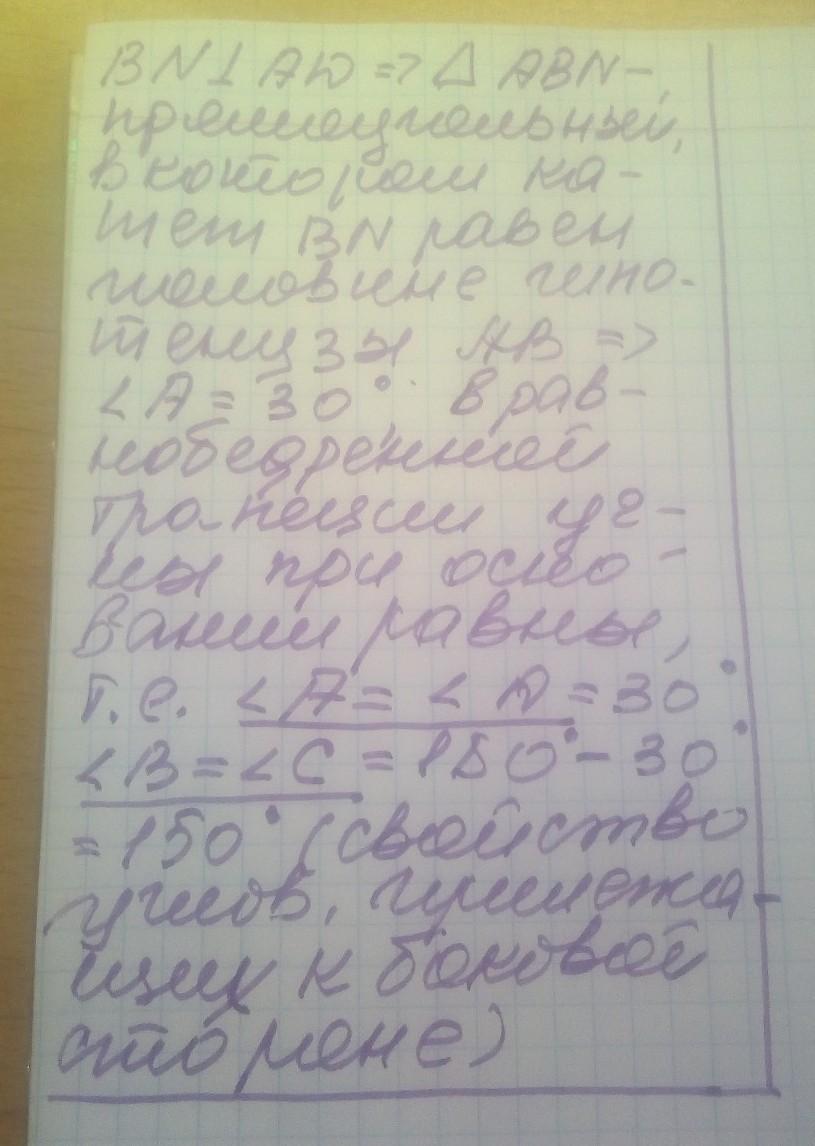 BN⊥AD => Δ ABN-
прямоугольный,
в котором ка-
тет BN равен
половине гипо-
тенузы AB =>
∠A = 30° в рав-
нобедренной
трапеции уг-
лы при осно-
вании равны,
т.е. ∠A = ∠D = 30°
∠B = ∠C = 180° - 30°
= 150° (свойство
углов, прилежа-
щих к боковой
стороне)